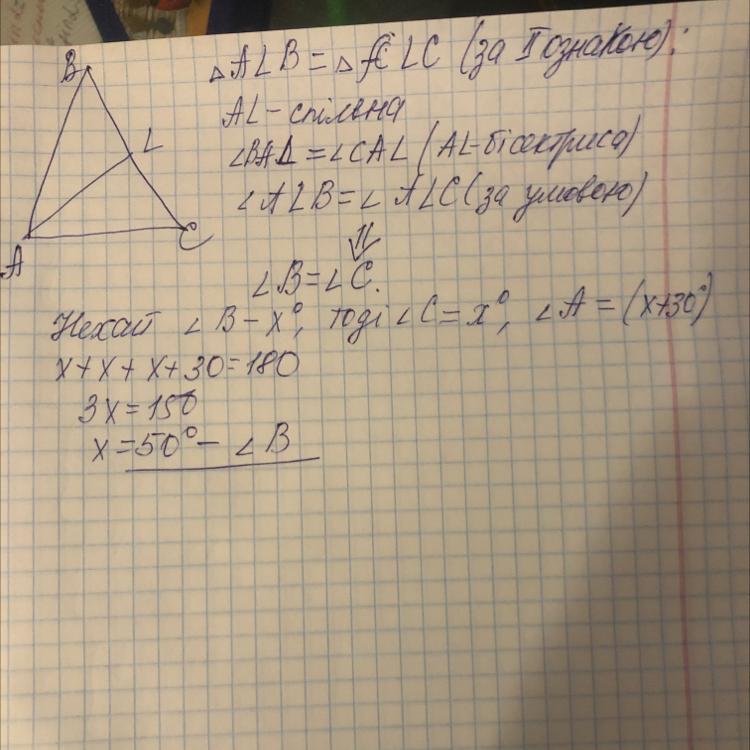 B
L
A
C
△ALB = △ALC (за II ознакою):
AL - спільна
∠BAL = ∠CAL (AL-бісектриса)
∠ALB = ∠ALC (за умовою)
⇓
∠B = ∠C.
Нехай ∠B - x°, тоді ∠C = x°, ∠A = (x+30°)
x + x + x + 30 = 180
3x = 150
x = 50° - ∠B